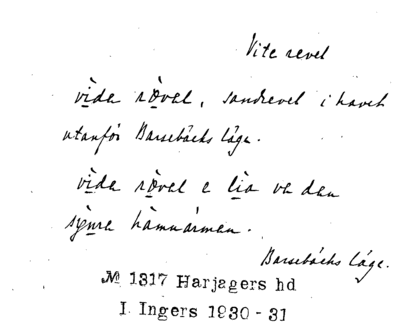 Vite revel
vìda rø̀val, sandrevel i havet
utanför Barsebäcks läge.
vìda rø̀val e lia ve den
sỳnra hàmnármen.
Barsebäcks läge.
№ 1317 Harjagers hd
I. Ingers 1930-31